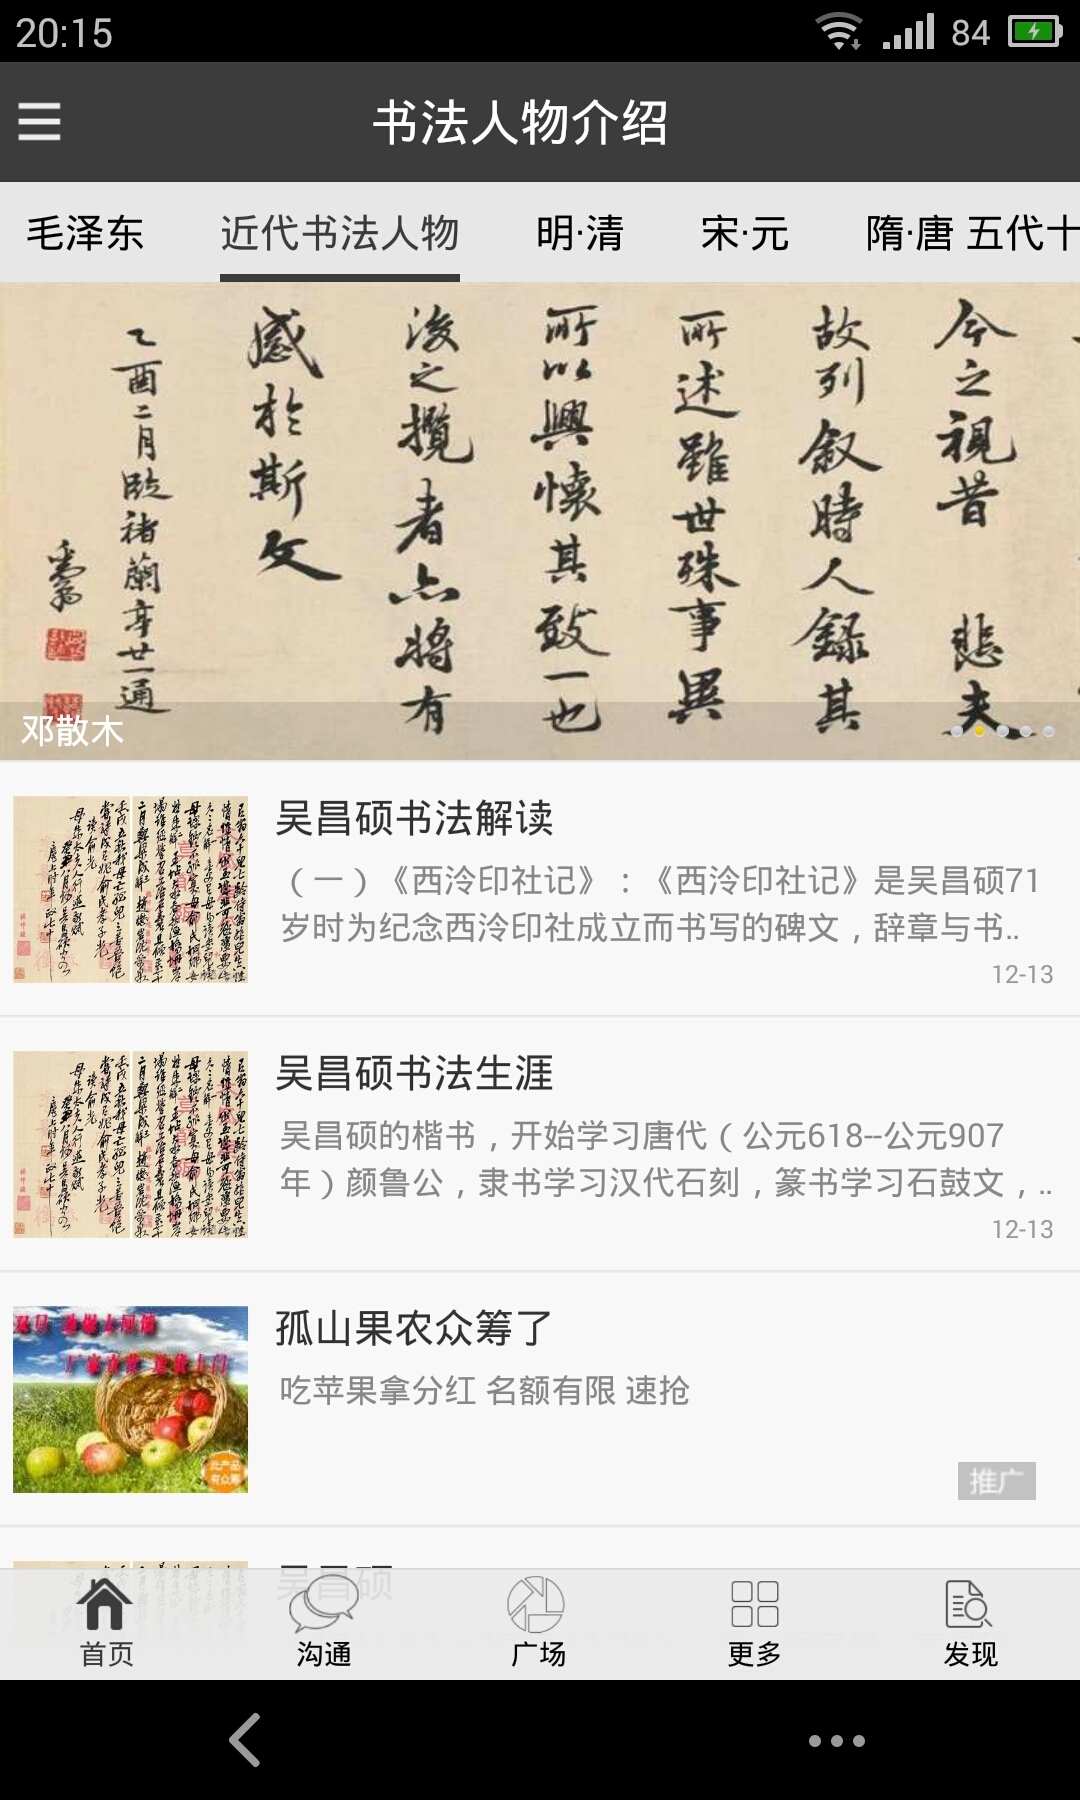 20:15
84
书法人物介绍
毛泽东 近代书法人物 明·清 宋·元 隋·唐 五代十
今之視昔 悲夫
故列叙時人録其
所述雖世殊事異
所以興懷其致一也
後之攬者亦將有
感於斯文
乙酉二月臨褚蘭亭廿一通
邓散木
吴昌硕书法解读
（一）《西泠印社记》：《西泠印社记》是吴昌硕71
岁时为纪念西泠印社成立而书写的碑文，辞章与书..
12-13
吴昌硕书法生涯
吴昌硕的楷书，开始学习唐代（公元618--公元907
年）颜鲁公，隶书学习汉代石刻，篆书学习石鼓文，..
12-13
孤山果农众筹了
吃苹果拿分红 名额有限 速抢
推广
吴昌硕
首页 沟通 广场 更多 发现